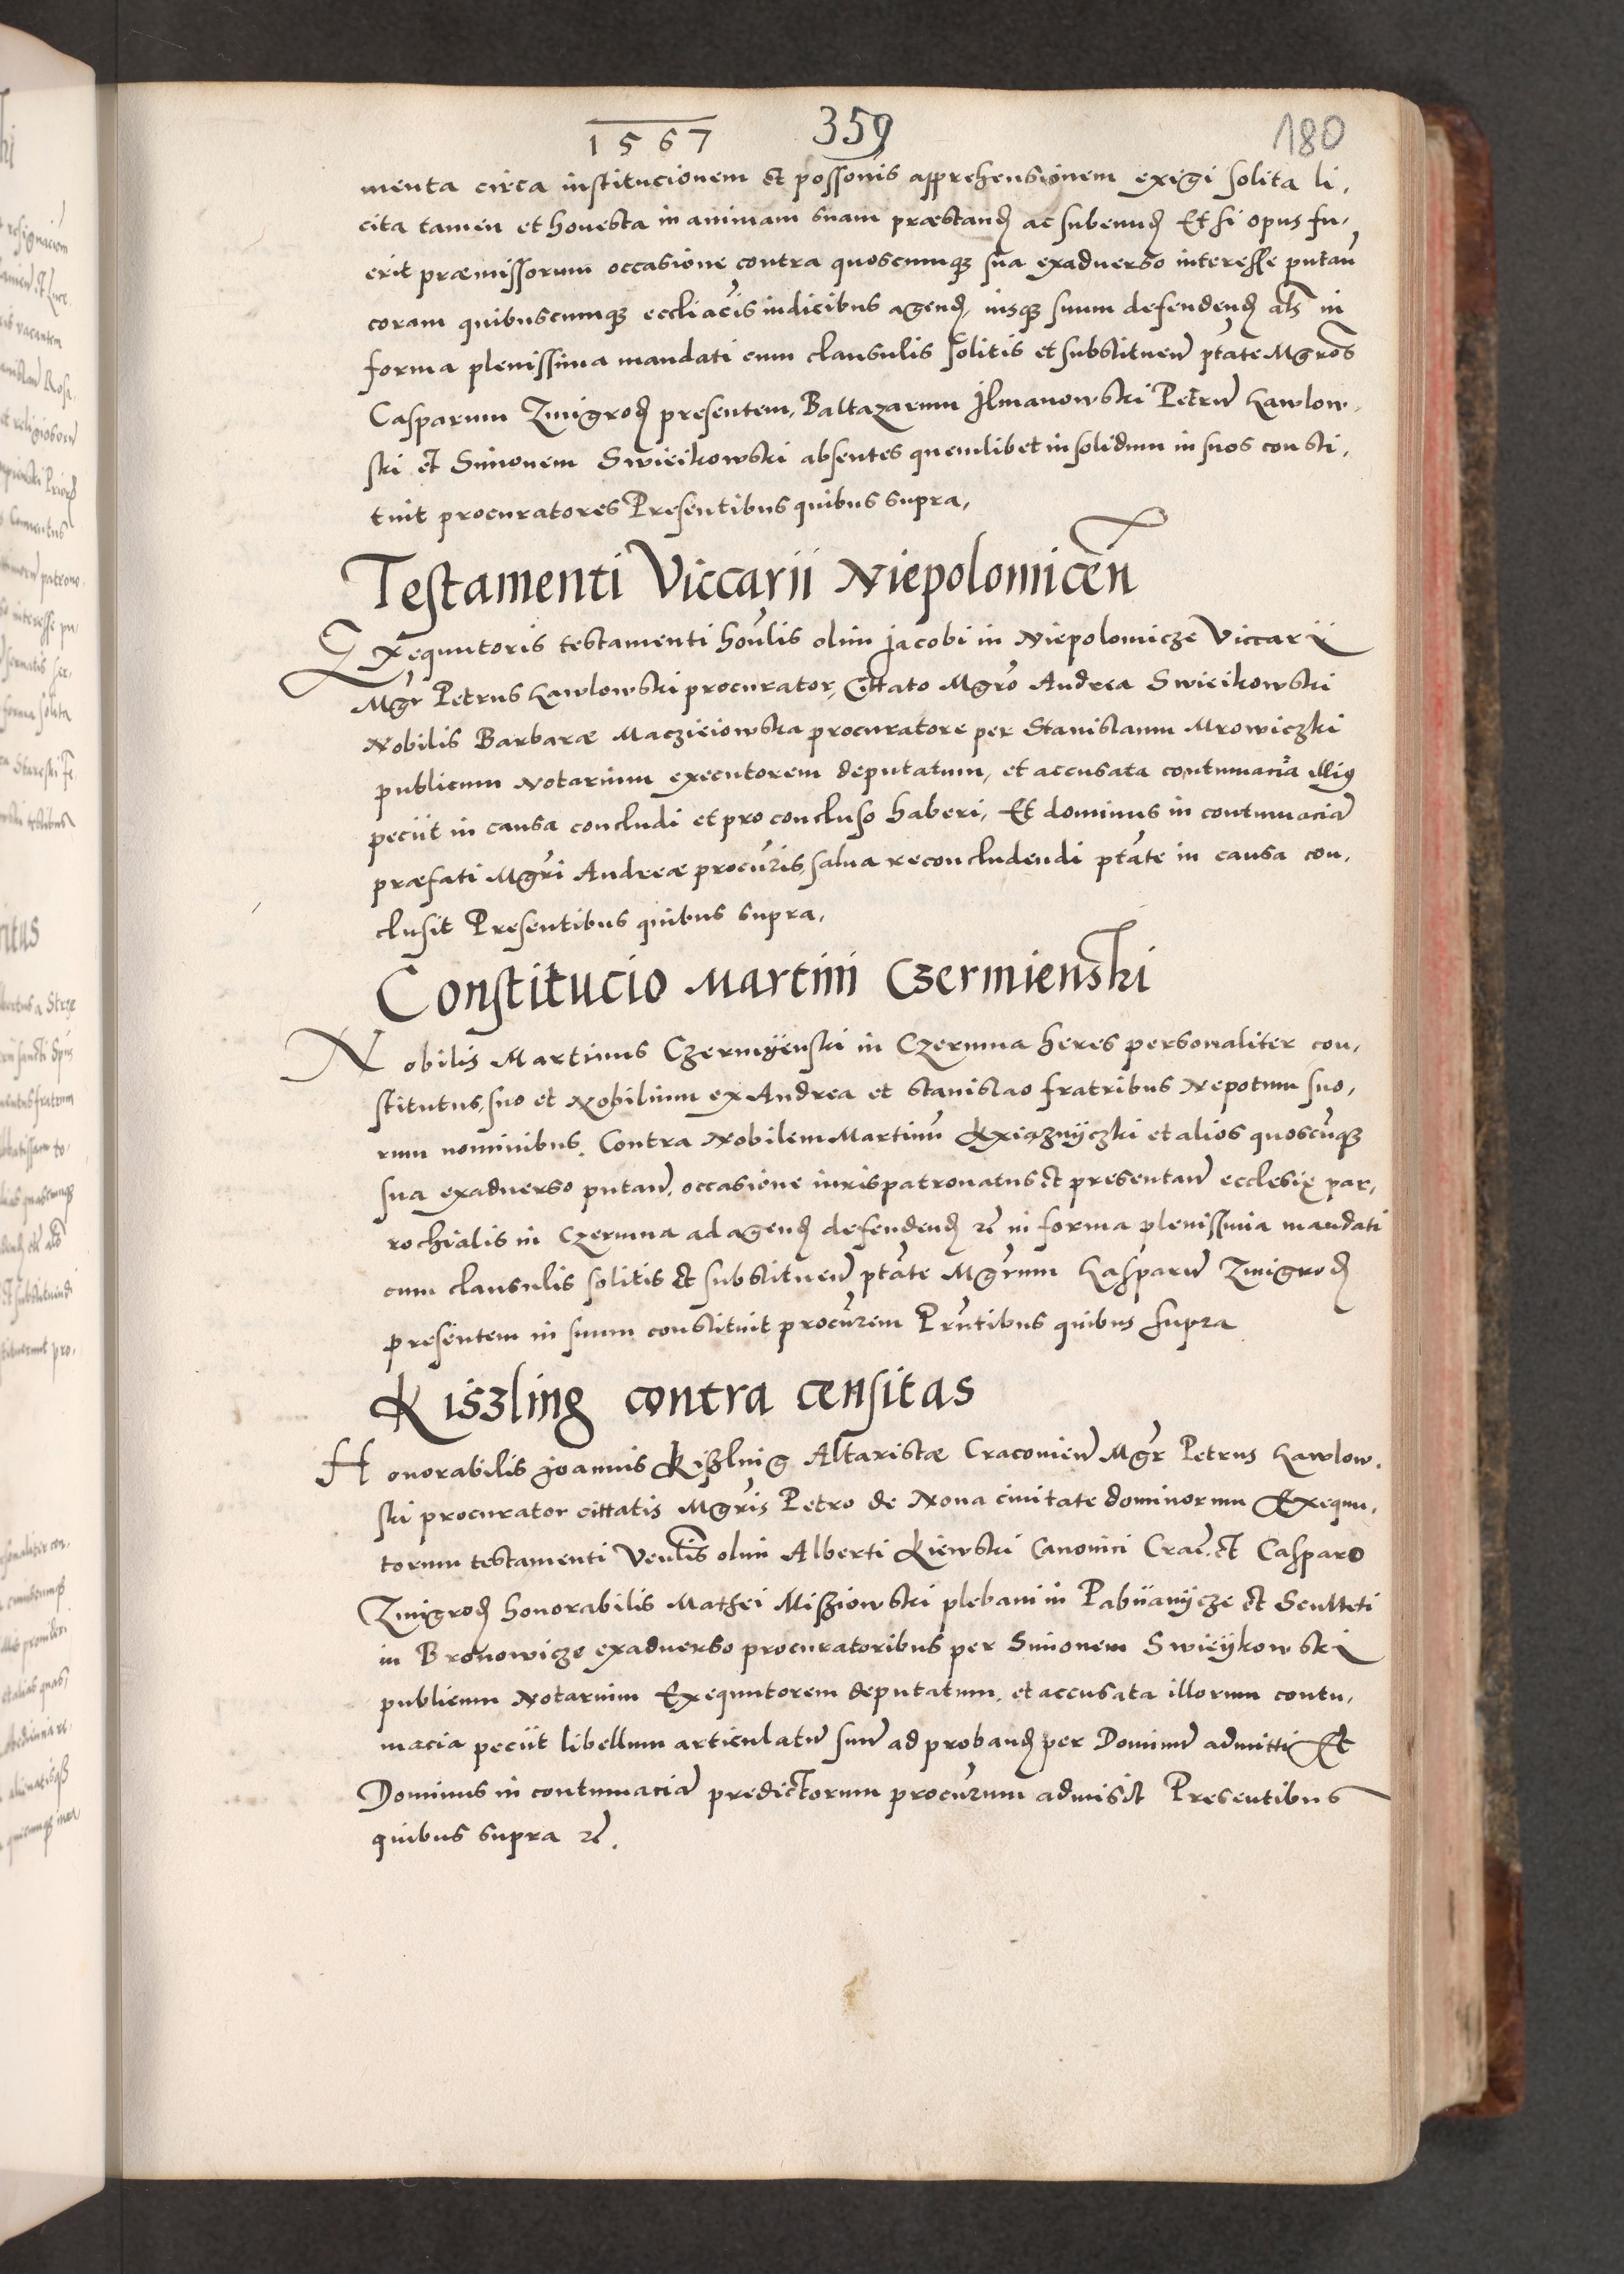 1567 359 180
menta circa institucionem et possonis apprehensionem exigi solita li,
cita tamen et honesta in animam suam præstand ac subeund Et si opus fu,
erit præmissorum occasione contra quoscumque sua exaduerso interesse putan
coram quibuscumque eccliacis iudicibus agend, iusque suum defendend als in
forma plenissima mandati cum clausulis solitis et substituen ptate Mgros
Casparum Zmigrod presentem, Baltazarum Ilmanowski Petrum Kawlow,
ski et Simonem Swieikowski absentes quemlibet in solidum in suos consti,
tuit procuratores Presentibus quibus supra,
Testamenti Viccarii Niepolomicen
Exequutoris testamenti honlis olim Jacobi in Niepolomicze Viccarii
Mgr Petrus Kawlowski procurator, Cittato Mgro Andrea Swieikowski
Nobilis Barbaræ Maczieiowska procuratore per Stanislaum Mrowiczki
publicum Notarium executorem deputatum, et accusata contumacia illius
peciit in causa concludi et pro concluso haberi, Et dominus in contumaciam
præfati Mgri Andreæ procuris, salua reconcludendi ptate in causa con,
clusit Presentibus quibus supra,
Constitucio Martini Czermienski
Nobilis Martinus Czermÿenski in Czermna heres personaliter con,
stitutus, suo et Nobilium ex Andrea et Stanislao fratribus Nepotum suo,
rum nominibus. Contra Nobilem Martinum Kxiąznÿczki et alios quoscunque
sua exaduerso putan, occasione iurispatronatus et presentan ecclesię par,
rochialis in Czermna ad agend defendend etc in forma plenissima mandati
cum clausulis solitis et substituen ptate Mgrum Kasparum Zmigrod
presentem in suum constituit procurem Prntibus quibus supra
Kiszling contra censitas
Honorabilis Joannis Kiszling Altaristæ Cracouien Mgr Petrus Kawlow,
ski procurator cittatis Mgris Petro de Noua ciuitate dominorum Exequu,
torum testamenti Venlis olim Alberti Kiewski Canonici Crac. et Casparo
Zmigrod honorabilis Mathei Misziowski plebani in Pabiianÿcze et Sculteti
in Bronowicze exaduerso procuratoribus per Simonem Swieÿkowski
publicum Notarium Exequutorem deputatum, et accusata illorum contu,
macia peciit libellum articulatum suum ad proband per Dominum admitti Et
Dominus in contumaciam predictorum procurum admisit Presentibus
quibus supra etc.